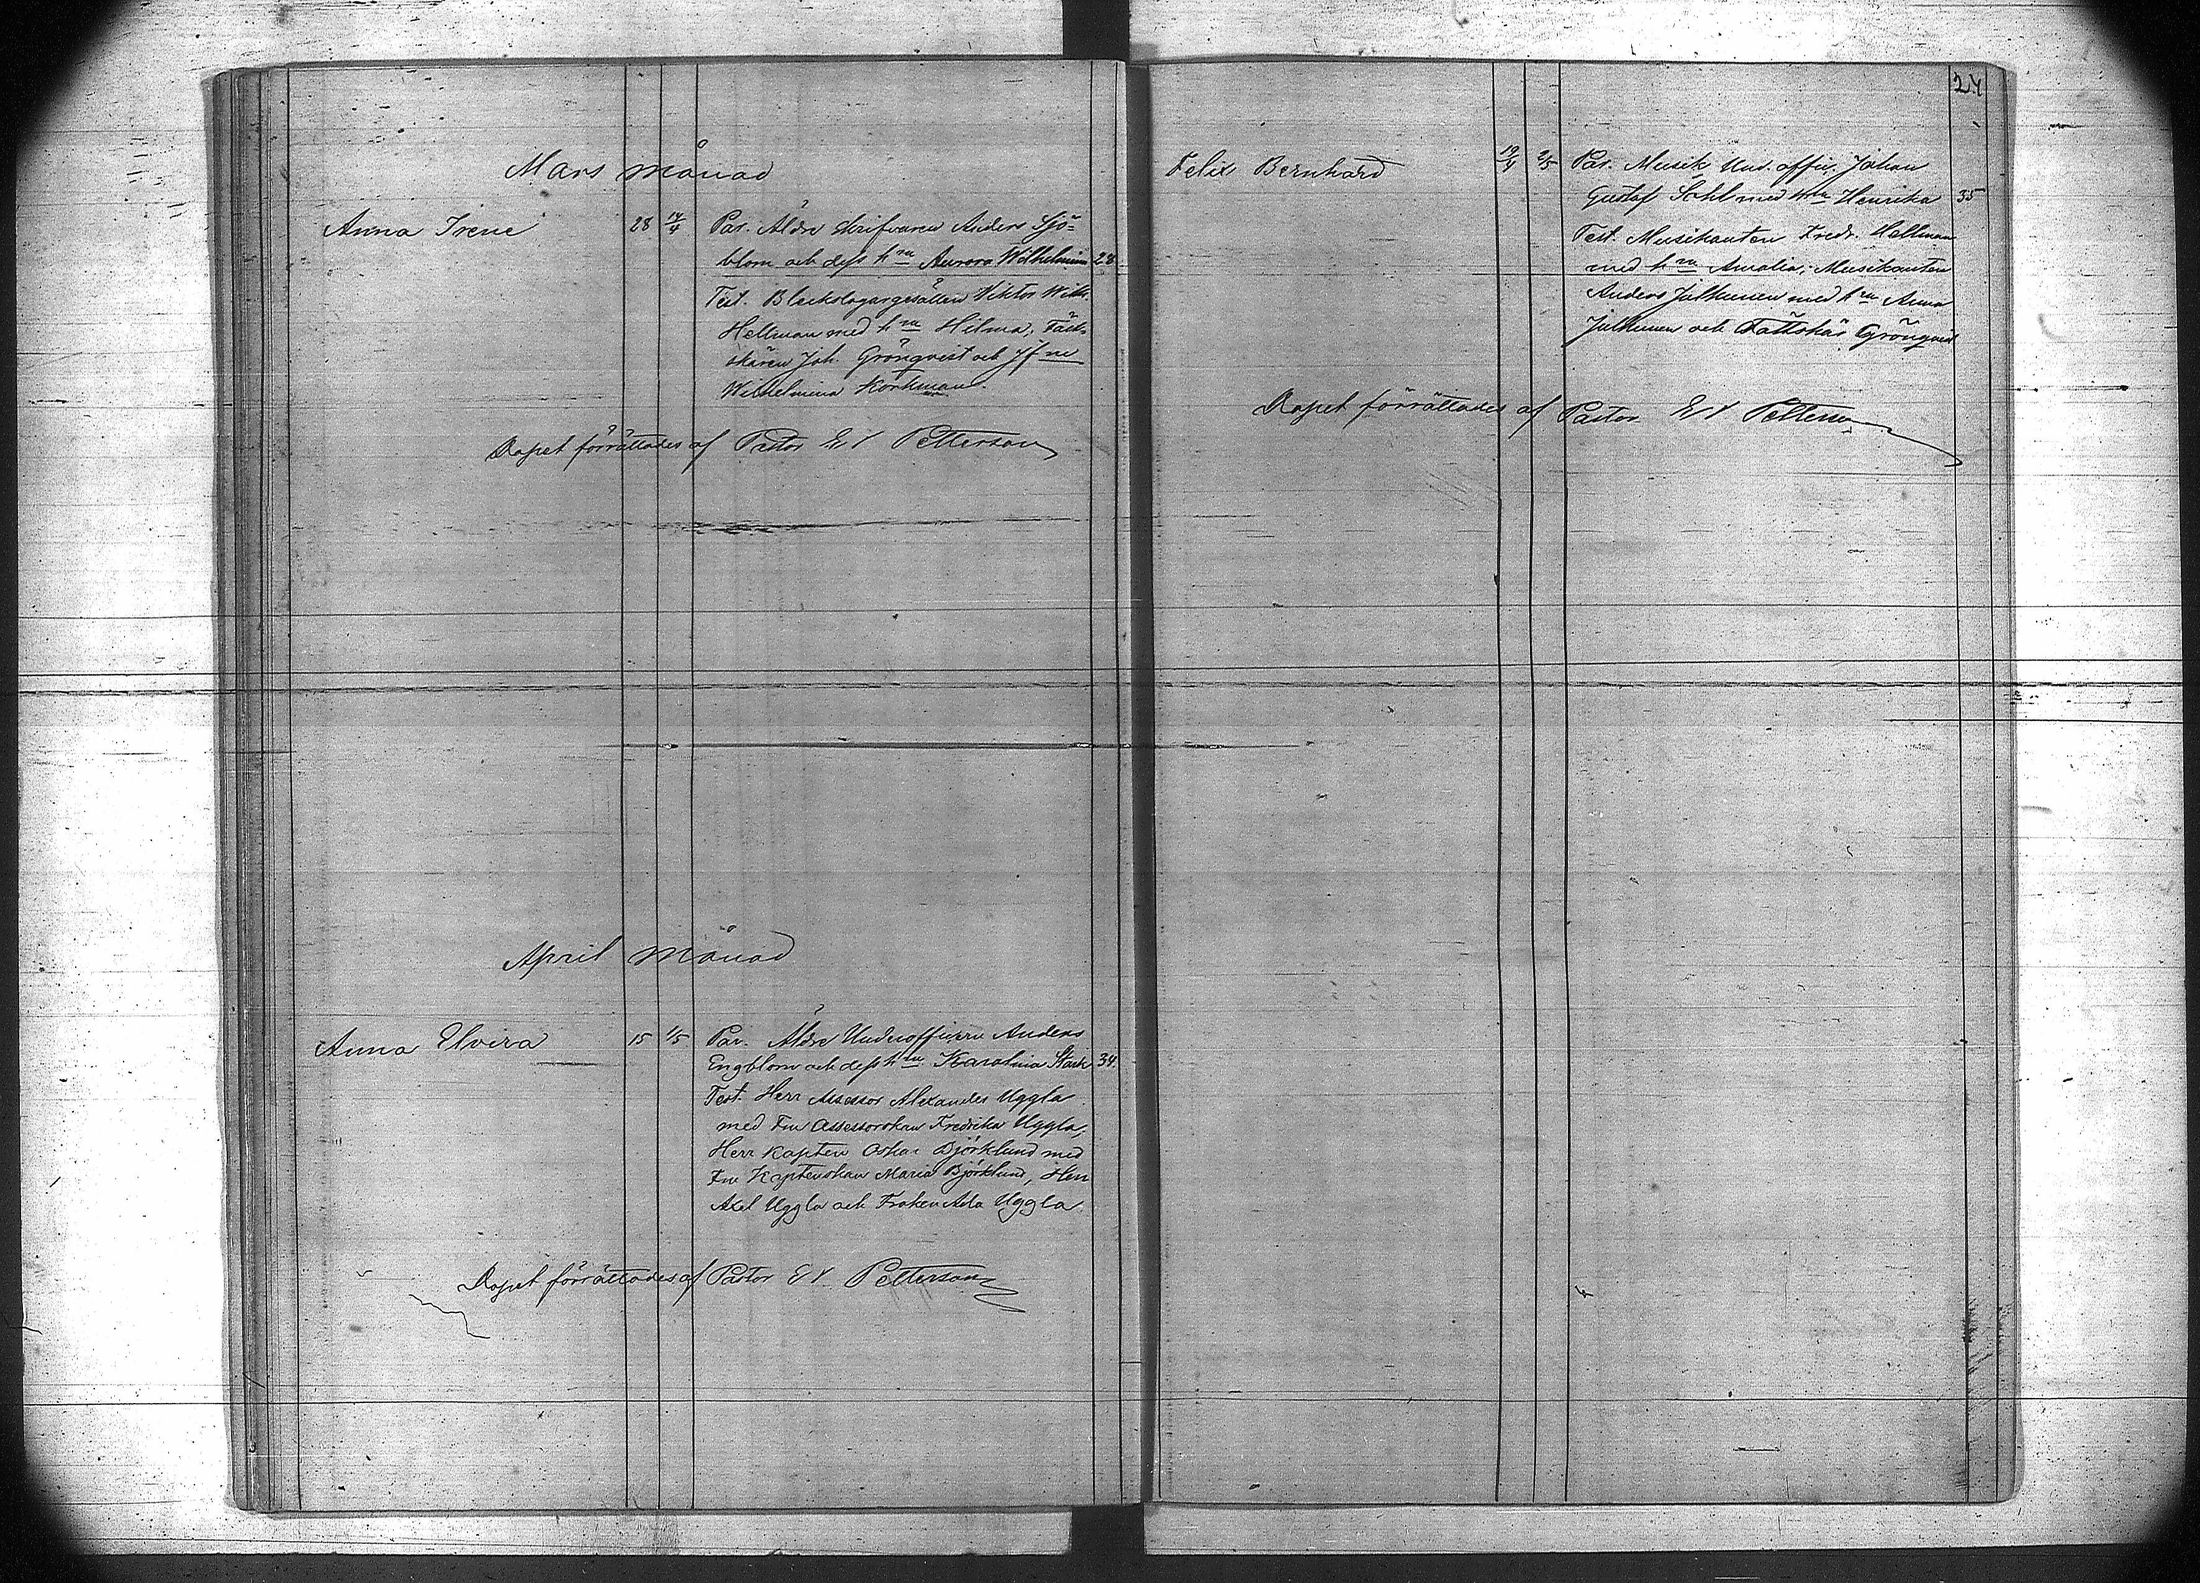 Mars månad
Anna Irene 28 14/4 Par. Äldre skrifvaren Anders Sjö-
blom och dess h:ru Aurora Wilhelmina 28
Test. Bleckslagargesällen Viktor Wilh.
Hellman med h:ru Hilma, Fält-
skären Joh. Grönqvist och Jfru
Wilhelmina Korkman.
Dopet förrättades af Pastor E V Petterson
April månad
Anna Elvira 15 1/5 Par. Äldre Underofficern Anders
Engblom och dess h:ru Karolina Stark 34.
Test. Herr Assessor Alexander Uggla
med Fru Assessorskan Fredrika Uggla,
Herr Kapten Oskar Björklund med
Fru Kaptenskan Maria Björklund, Herr
Axel Uggla och Fröken Ada Uggla.
Dopet förrättades af Pastor E V Petterson
24
Felix Bernhard 19/4 2/5 Par. Musik Und. offic. Johan
Gustaf Sohl med h:ru Henrika 35
Test. Musikanten Fredr. Hellman
med h:ru Amalia, Musikanten
Anders Julkunen med h:ru Anna
Julkunen och Fältskär Grönqvist
Dopet förrättades af Pastor E V Petterson